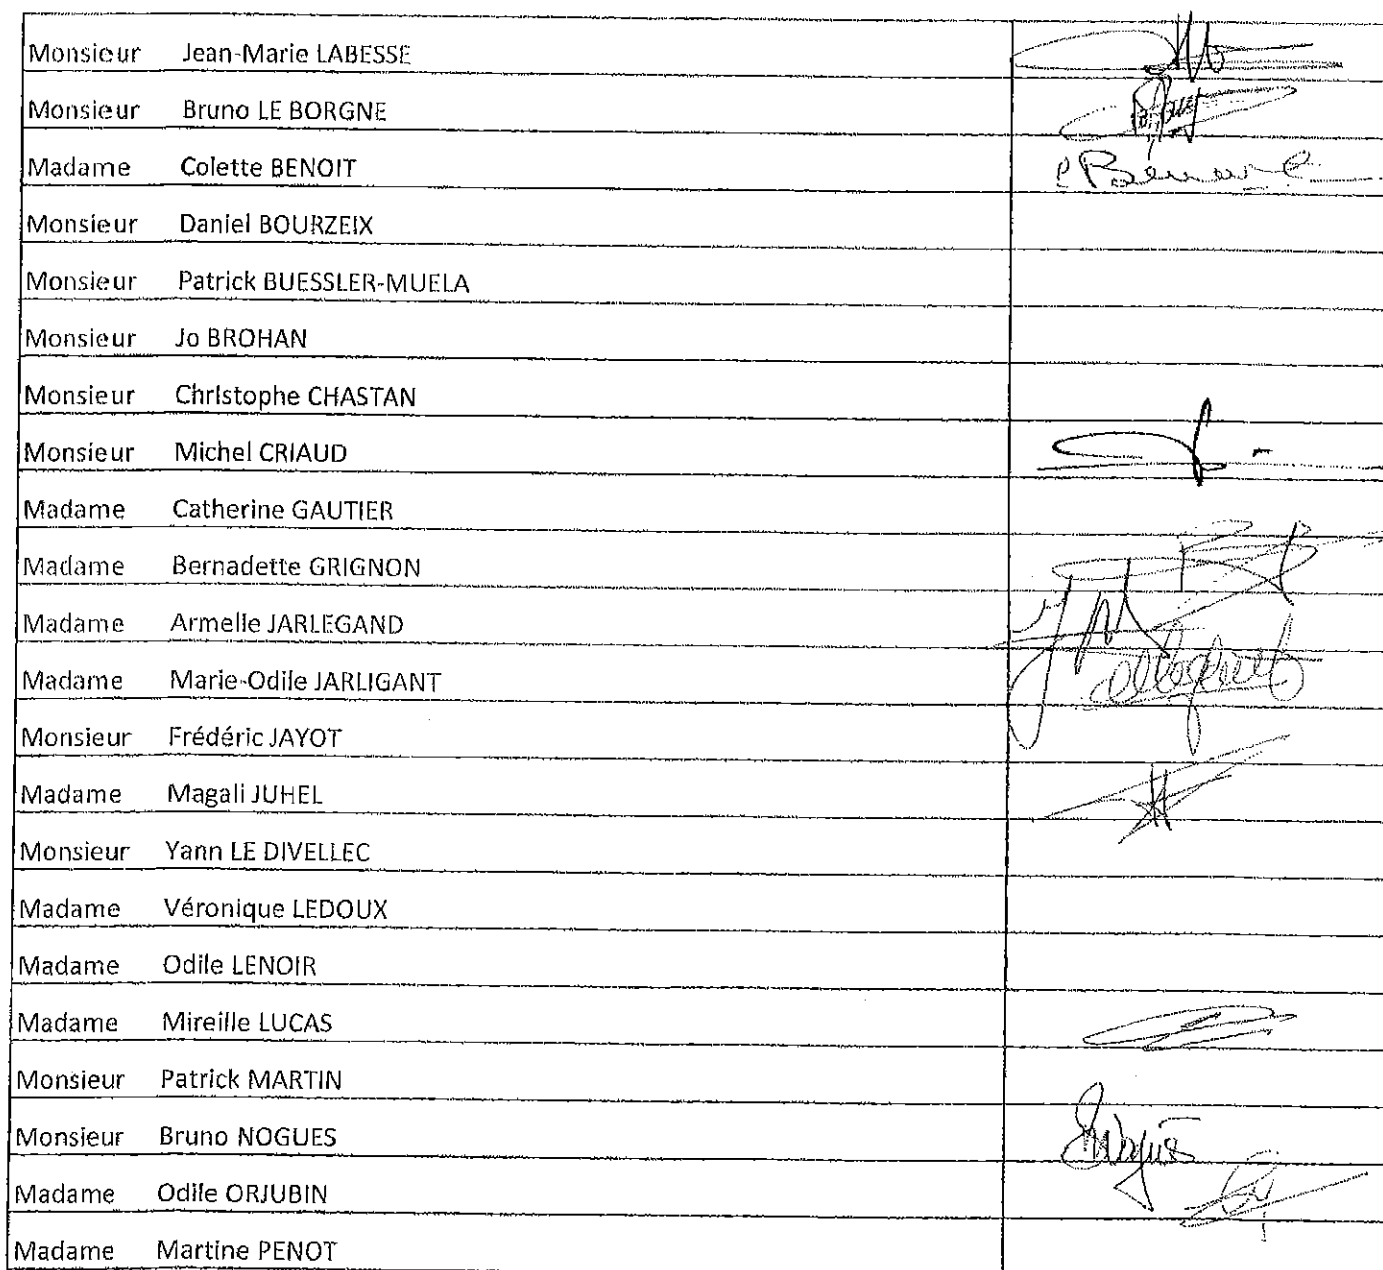 Monsieur Jean-Marie LABESSE
Monsieur Bruno LE BORGNE
Madame Colette BENOIT
Monsieur Daniel BOURZEIX
Monsieur Patrick BUESSLER-MUELA
Monsieur Jo BROHAN
Monsieur Christophe CHASTAN
Monsieur Michel CRIAUD
Madame Catherine GAUTIER
Madame Bernadette GRIGNON
Madame Armelle JARLEGAND
Madame Marie-Odile JARLIGANT
Monsieur Frédéric JAYOT
Madame Magali JUHEL
Monsieur Yann LE DIVELLEC
Madame Véronique LEDOUX
Madame Odile LENOIR
Madame Mireille LUCAS
Monsieur Patrick MARTIN
Monsieur Bruno NOGUES
Madame Odile ORJUBIN
Madame Martine PENOT